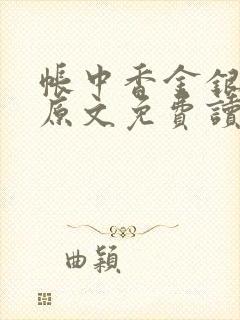 帳中香金銀
原文免費讀
曲穎